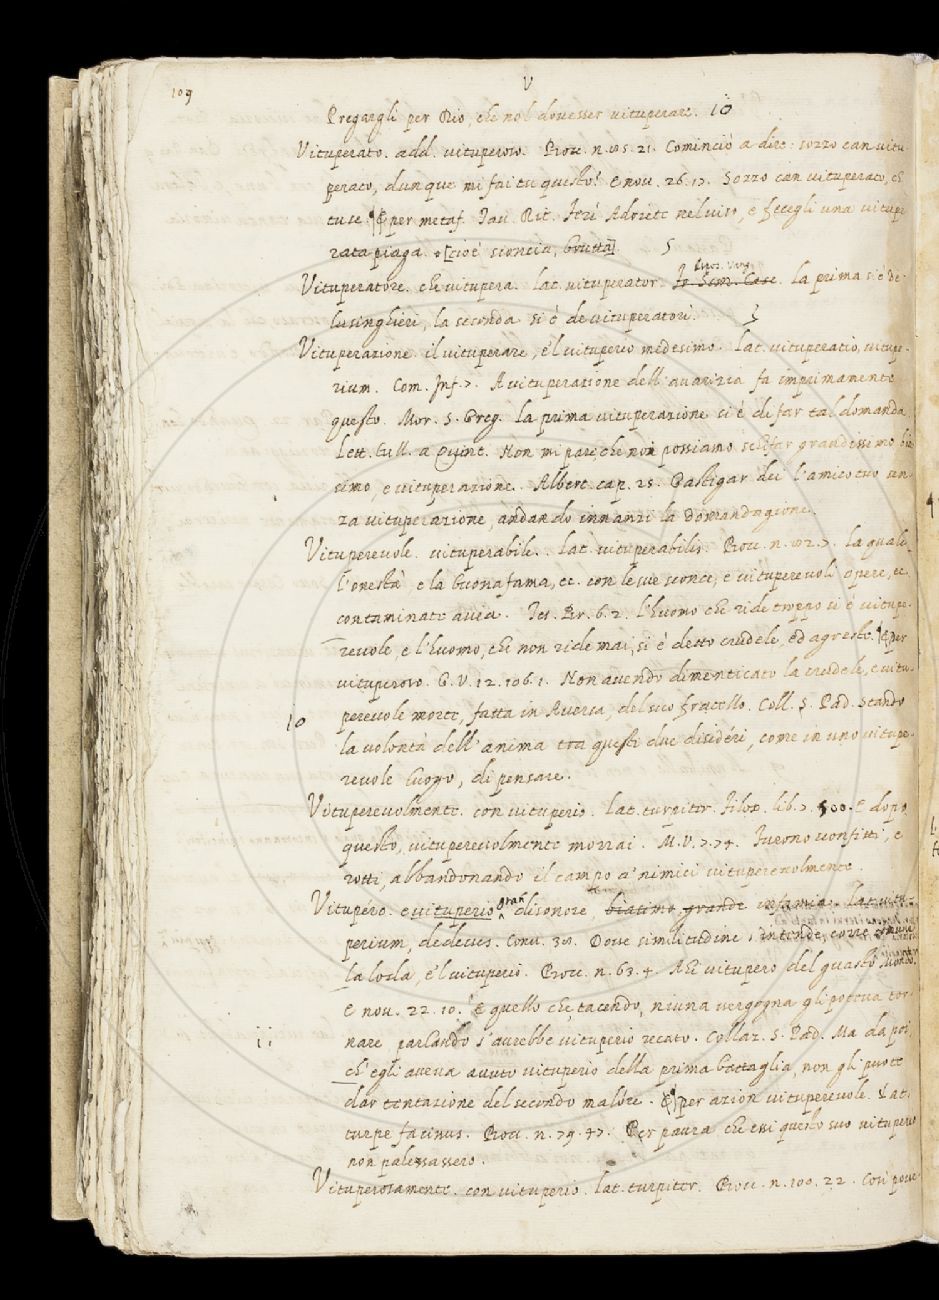 109
V
Pregargli per Dio, che nol dovesser vituperare. 10
Vituperato. add. vituperoso. Bocc. n. 85. 21. Cominciò a dire: sozzo can vitu
perato, dunque mi fai tu questo? E nov. 26. 17. Sozzo can vituperato, ch
tu se. ¶ E per metaf. Tav. Rit. Ferì Adriette nel viso, e fecegli una vitupe
rata piaga. [cioè sconcia, brutta] 5
Vituperatore. che vitupera. lat. vituperator. la prima si è de
lusinghieri, la seconda si è de vituperatori. 3
Vituperazione. il vituperare, e 'l vituperio medesimo. lat. vituperatio, vitupe-
rium. Com. Inf. 7. A vituperazione dell' avarizia fa imprimamente
questo. Mor. S. Greg. la prima vituperazione si è di far tal domanda
Lett. Tull. a Quint. Non mi pare, che noi possiamo grandissimo bia
simo, e vituperazione. Albert. cap. 25. Gastigar dei l'amico tuo sen
za vituperazione, andando innanzi la domandagione.
Vituperevole. vituperabile. lat. vituperabilis. Bocc. n. 82. 7. la quale
l'onestà e la buona fama, ec. con le sue sconce, e vituperevoli opere, ec.
contaminate avea. Tes. Br. 6. 2. l'huomo che ride troppo si è vitupe-
revole, e l'huomo, che non ride mai, si è detto crudele, ed agresto. ¶ E per
vituperoso. G. V. 12. 106. 1. Non avendo dimenticato la crudele, e vitu-
10 perevole morte, fatta in Aversa, del suo fratello. Coll. S. Pad. Stando
la volontà dell' anima tra questi due disidéri, come in uno vitupe-
revole luogo, di pensare.
Vituperevolmente. con vituperio. lat. turpiter. Filoc. lib. 7. 500. E dopo
questo, vituperevolmente morrai. M. V. 7. 74. Furono sconfitti, e
rotti, abbandonando il campo a' nimici vituperevolmente.
Vitupéro. e vituperio gran disonore, biasimo grande infamia. lat. vitu-
perium, dedecus. Conv. 38. Dove similitudine s'intende, corre
la loda, e 'l vituperio. Bocc. n. 63. 4. Ahi vitupero del guasto mondo.
E nov. 22. 10. E quello che, tacendo, niuna vergogna gli poteva tor-
11 nare parlando s'avrebbe vituperio recato. Collaz. S. Pad. Ma da poi
ch' egli aveva avuto vituperio della prima battaglia, non gli puote
dar tentazione del secondo malore. ¶ per azion vituperevole. Lat.
turpe facinus. Bocc. n. 79. 47. Per paura che essi questo suo vituperio
non palesassero.
Vituperosamente. con vituperio. lat. turpiter. Bocc. n. 100. 22. Così pove